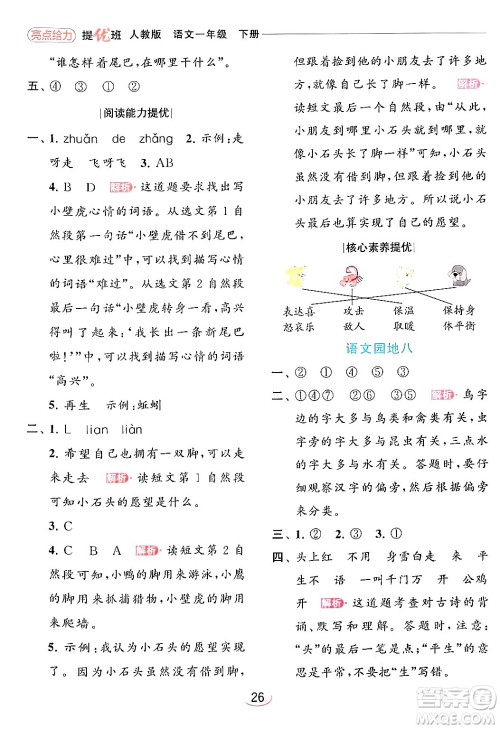 亮点给力 提优班 人教版 语文一年级 下册
“谁怎样看着尾巴，谁怎样说”。
五、④
阅读能力提优
一、1. zhuǎn de zhǎng 2. 示例：走
呀走 飞呀飞 3. AB
4. B D 解析 这道题要求找出写
小壁虎心情的词语。从选文第 1 自
然段第一句话“小壁虎借不到尾巴，
心里很难过”，可以找到描写心情的
词语“难过”。从选文第 2 自然段
最后一句话“小壁虎转身一看，高兴
得叫了起来：‘我长出一条新尾巴
啦！’”，可以找到描写心情的词语
“高兴”。
5. 再生 示例：蚯蚓
二、1. L lian liàn
2. 希望自己拥有一双脚，可以走
来走去 解析 读短文第 1 自然段
可知小石头的愿望是什么。
3. C
4. C B A 解析 读短文第 2 自然
段可知，小鸭的脚用来游泳，小鹰
的脚用来抓捕猎物，小兔的脚用来
蹦跳。
5. 示例：我认为小石头的愿望实现
了。因为小石头虽然没有脚，但是
它被小朋友串在项链上，小朋友走
到哪里，就把小石头带到哪里，就
好像小石头长了脚一样。小石头跟
小朋友去了许多地方。 解析
读短文的最后一个自然段，从“小
朋友走到哪里，就把小石头带到哪
里，就好像小石头长了脚一样。小
石头跟小朋友去了许多地方。”可
知，小石头实现了自己的愿望。
核心素养提优
表达喜怒哀乐 攻击敌人 保温取暖 保持身体平衡
语文园地八
一、② ① ④ ③
二、①④⑦ ②⑤ ③⑥ 解析 鸟字
边的字大多与鸟类和禽类有关，虫
字旁的字大多与昆虫有关，三点水
的字大多与水有关。答题时，要仔
细观察汉字的偏旁，根据汉字的偏
旁来分类。
三、1. ② 2. ③ 3. ①
四、头上红 不用 身雪白走 来 平
生 不 语 一叫千门万 开 公鸡
开 解析 这道题考查对古诗的背
诵与默写。答题时，要注意不要将
“头”的最后一笔写成捺，“平生”的
意思是平常，不要写错。
26
答案圈
MXQE.COM